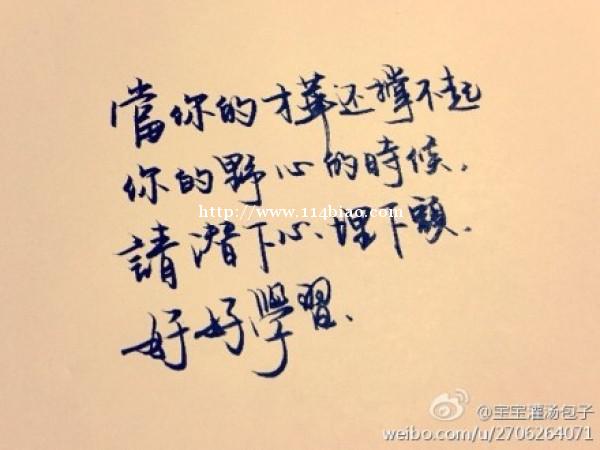 當你的才華还撐不起
你的野心的時候,
請潛下心、埋下頭,
好好學習、
http://www.114biao.com
@宝宝灌汤包子
weibo.com/u/2706264071